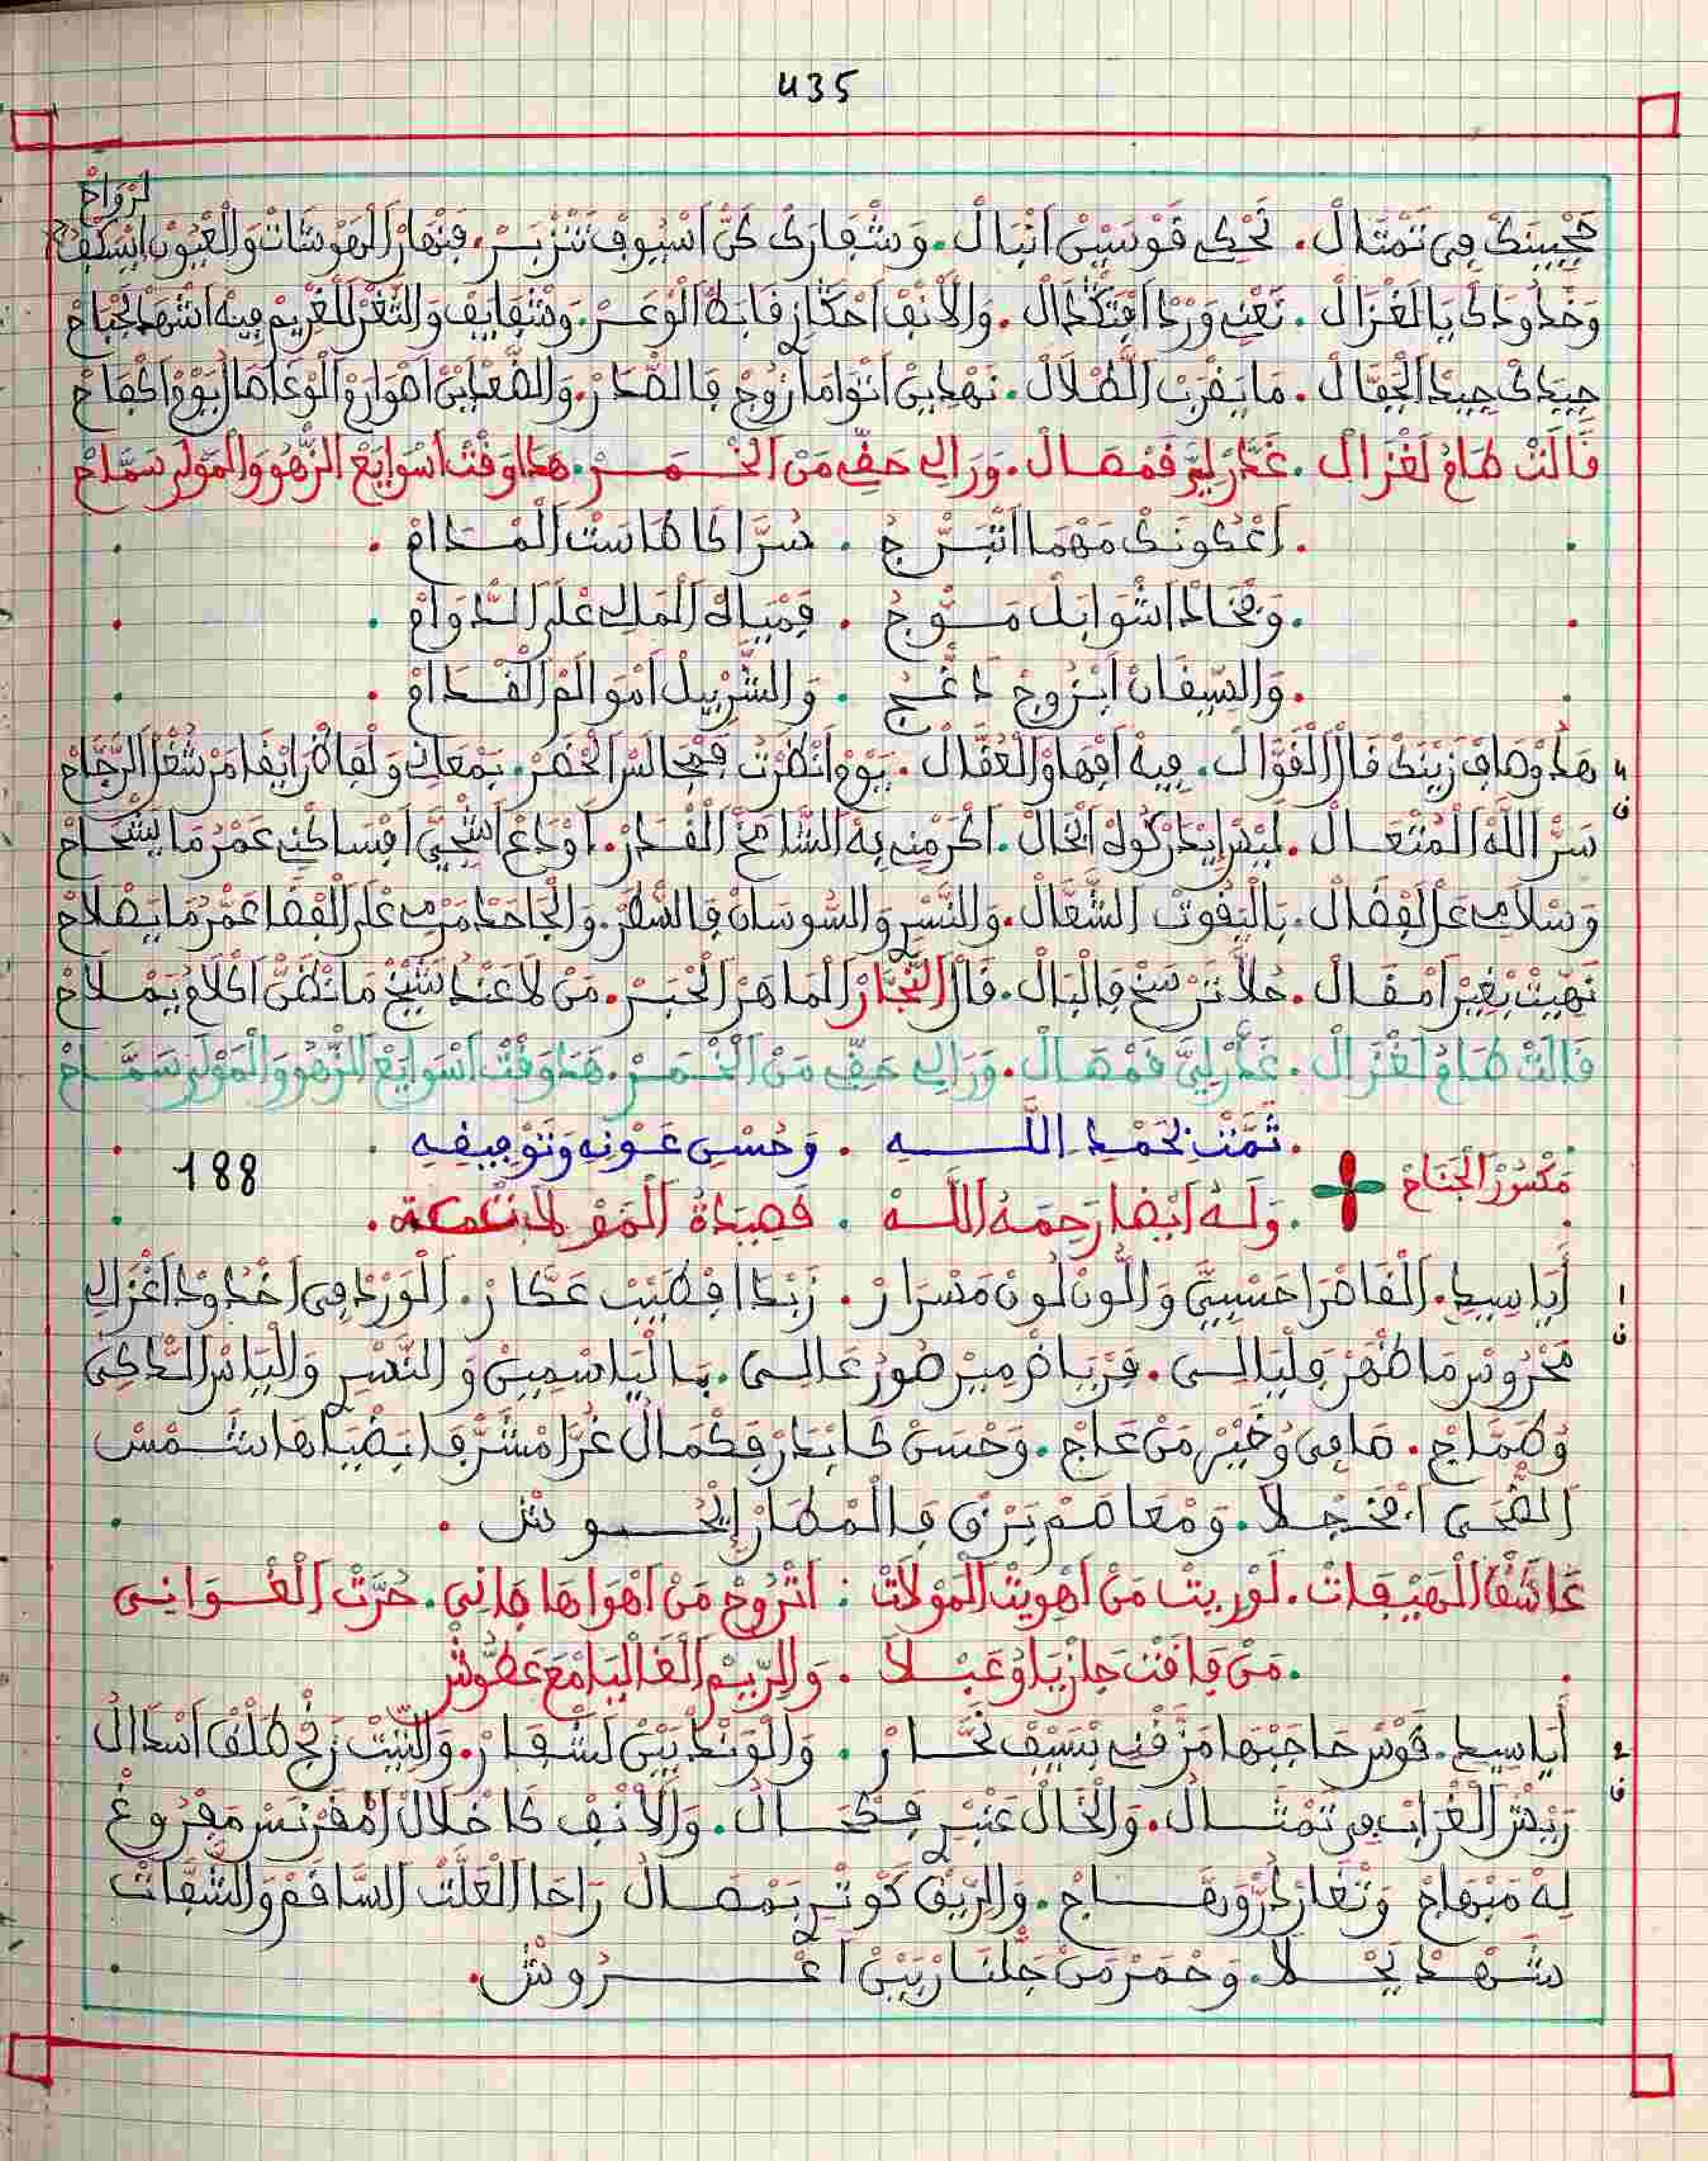 435
لرواح
حجبينك في تمثال . تحكي قوسين انبال . وشفارك كن اسيوف تنزبر . فنهار الهوشات والعيون
وخدودك يا لغزال . تعني ورد . والانف . وشفايف والثغر للغريم فيه اشهد لجباح
جيدك جيد الجفال . ما يقرب الطلال . نهدين اتوام ازوج فالصدر .
قالت طام لغزال . غدر لي فمصال . ورالي حقي من الخمر . هذا وقت اسوايع الزهو والمولى سماح
. اعكونك مهما اتبرج . سرا كا طاست المدام .
. وفخاد اشوابل موج . فمياه المالي على الدوام .
. والسيقان ابروج دغج . والشربيل اموالم القدام .
4
هذ وصاف زينك قال القوال . فيه افهاو العقال . يوم انظرت فمجالس الحضر .
ف
سر الله المتعال . ليس ايدركوه انحال . اكرمني به الشامخ القدر .
وسلامي عل الفضال . باليقوت الشعال . والنسري والسوسان فالسطر . والجاحد مرمي على القفا عمر ما يصلاح
نهيت بغير امقال . حلا ترسخ فالبال . قال النجار الماهر الحبر . من لا عند شيخ ما نظن اكلام يملاح
قالت طام لغزال . غدر لي فمصال . ورالي حقي من الخمر . هذا وقت اسوايع الزهو والمولى سماح
. تمت بحمد الله . وحسن عونه وتوفيقه .
188
مكسور الجناح
. وله ايضا رحمه الله . قصيدة المولات .
1
ف
أيا سيدي . القاصرا حسبي واللون لون مسرار . زبدا فطيب عطار . الورد في اخدود اغزالي
محروس ما ظهر فليالي . فرياض مير صور عالي . بالياسمين والنسري والياس الداكي
وصماج . صافي وخير من عاج . وحسن كا بدر فكمال غرا مشرقا بضياها شمس
الضحى افخجلا . ومعاصم برق فالمطار
عاشق الهيفات . لو ريت من اهويت المولات : اتروح من اهواها فاني . حرت الغواني
. من فاقت جازيا وعبلا . والريم الغاليا مع عطوش
2
ف
أيا سيدي . قوس حاجبها مزقني بسيف نحار . والوند بين لشفار . والتيت زنج طلق اسدال
ريش الغراب في تمثال . والخال عنبر فكحال . والانف كا خلال امفرنس مفروغ
له مبهاج وثغار در وهاج . والريق كوثر بمصال راحا العلت الساقم والشفات
شهد يحلا . وخمر من جلنار بين اغروش .